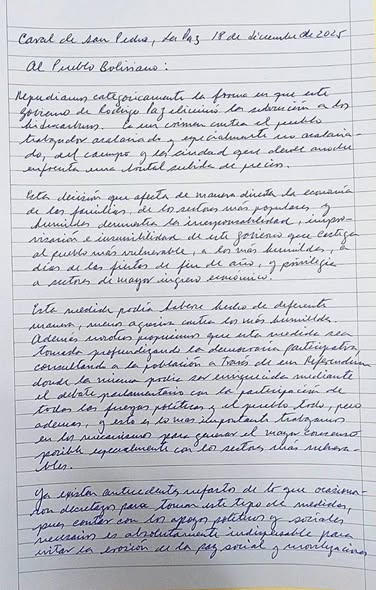 Carcel de San Pedro, La Paz 18 de diciembre de 2025
Al Pueblo Boliviano:
Repudiamos categoricamente la forma en que este
gobierno de Rodrigo Paz eliminó la subvención a los
hidrocarburos. Es un crimen contra el pueblo
trabajador asalariado y especialmente no asalaria-
do, del campo y la ciudad que desde anoche
enfrenta una brutal subida de precios.
Esta decisión que afecta de manera directa la economía
de las familias, de los sectores mas populares y
humildes demuestra la irresponsabilidad, impro-
visación e insensibilidad de este gobierno que castiga
al pueblo mas vulnerable, a los mas humildes, a
dias de las fiestas de fin de año, y privilegia
a sectores de mayor ingreso económico.
Esta medida podía haberse hecho de diferente
manera, menos agresiva contra los mas humildes.
Además nosotros propusimos que esta medida sea
tomada profundizando la democracia participativa,
consultando a la población a través de un Referendum
donde la misma podía ser enriquecida mediante
el debate parlamentario con la participación de
todas las fuerzas políticas y el pueblo todo, pero
ademas, y esto es lo mas importante trabajamos
en los mecanismos para generar el mayor consenso
posible especialmente con los sectores mas vulnera-
bles.
Ya existen antecedentes nefastos de lo que ocasiona-
ron decretazos para tomar este tipo de medidas,
pues contar con los apoyos políticos y sociales
necesarios es absolutamente indispensable para
evitar la erosión de la paz social y movilizaciones